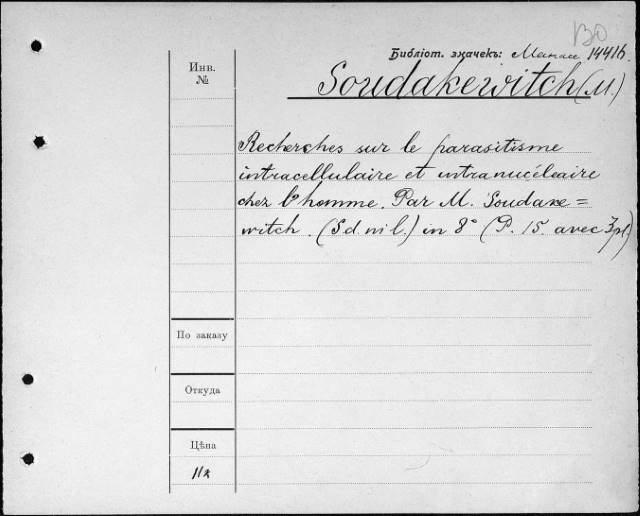 ВО
Библіот. значекъ: Манас 14416.
Инв.
№
Soudakewitch (M.)
Recherches sur le parasitisme
intracellulaire et intranucéleaire
chez l'homme. Par M. Soudake=
witch. (S d ni l.) in 8° (P. 15. avec 3 pl)
По заказу
Откуда
Цѣна